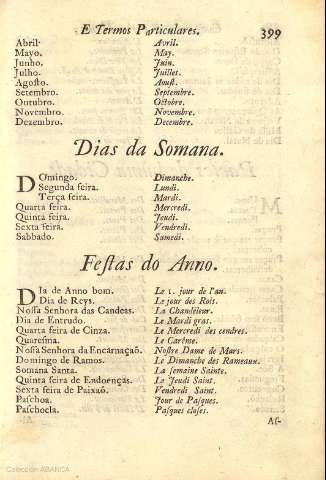 E Termos Particulares. 399
Abril. Avril.
Mayo. May.
Junho. Juin.
Julho. Juillet.
Agosto. Aoust.
Setembro. Septembre.
Outubro. Octobre.
Novembro. Novembre.
Dezembro. Decembre.
Dias da Somana.
Domingo. Dimanche.
Segunda feira. Lundi.
Terça feira. Mardi.
Quarta feira. Mercredi.
Quinta feira. Jeudi.
Sexta feira. Vendredi.
Sabbado. Samedi.
Festas do Anno.
DIa de Anno bom. Le 1. jour de l'an.
Dia de Reys. Le jour des Rois.
Nossa Senhora das Candeas. La Chandeleur.
Dia de Entrudo. Le Mardi gras.
Quarta feira de Cinza. Le Mercredi des cendres.
Quaresma. Le Carême.
Nossa Senhora da Encarnaçaõ. Nostre Dame de Mars.
Domingo de Ramos. Le Dimanche des Rameaux.
Somana Santa. La semaine Sainte.
Quinta feira de Endoenças. Le Jeudi Saint.
Sexta feira de Paixaõ. Vendredi Saint.
Paschoa. Jour de Pasques.
Paschoela. Pasques closes.
As-
Colección ABANCA